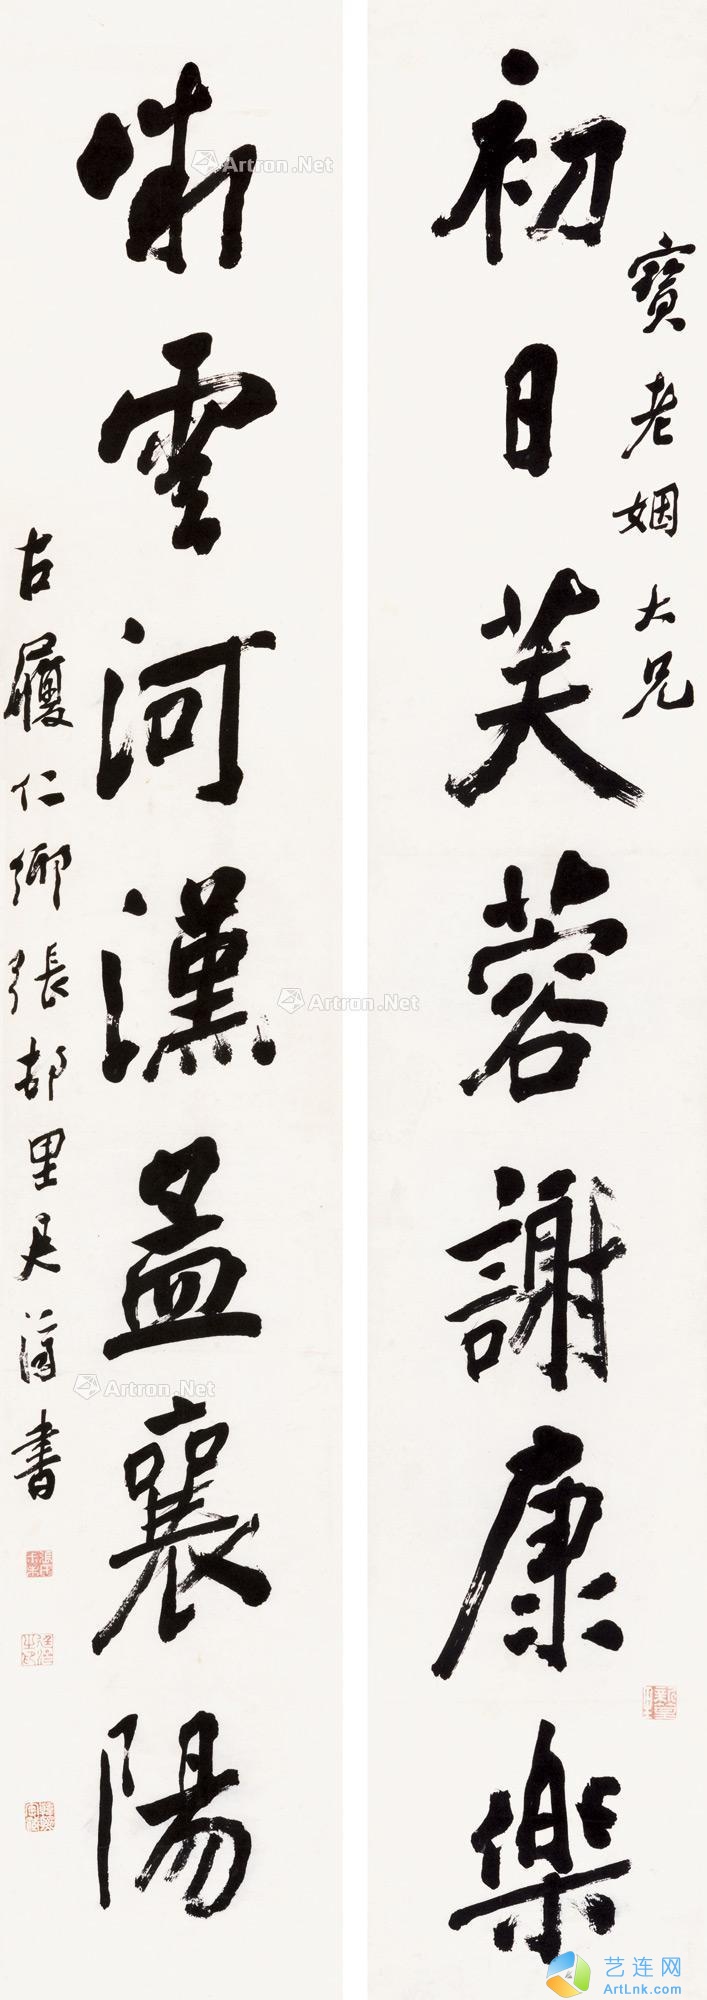 初日芙蓉謝康樂
寶老姻大兄
微雲河漢孟襄陽
古履仁鄉張里書
Artron.Net
Artron.Net
Artron.Net
艺连网
ArtLnk.com